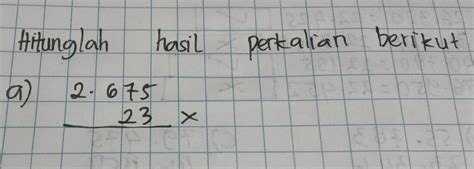 Hitunglah hasil perkalian berikut
a) 2.675
23 x